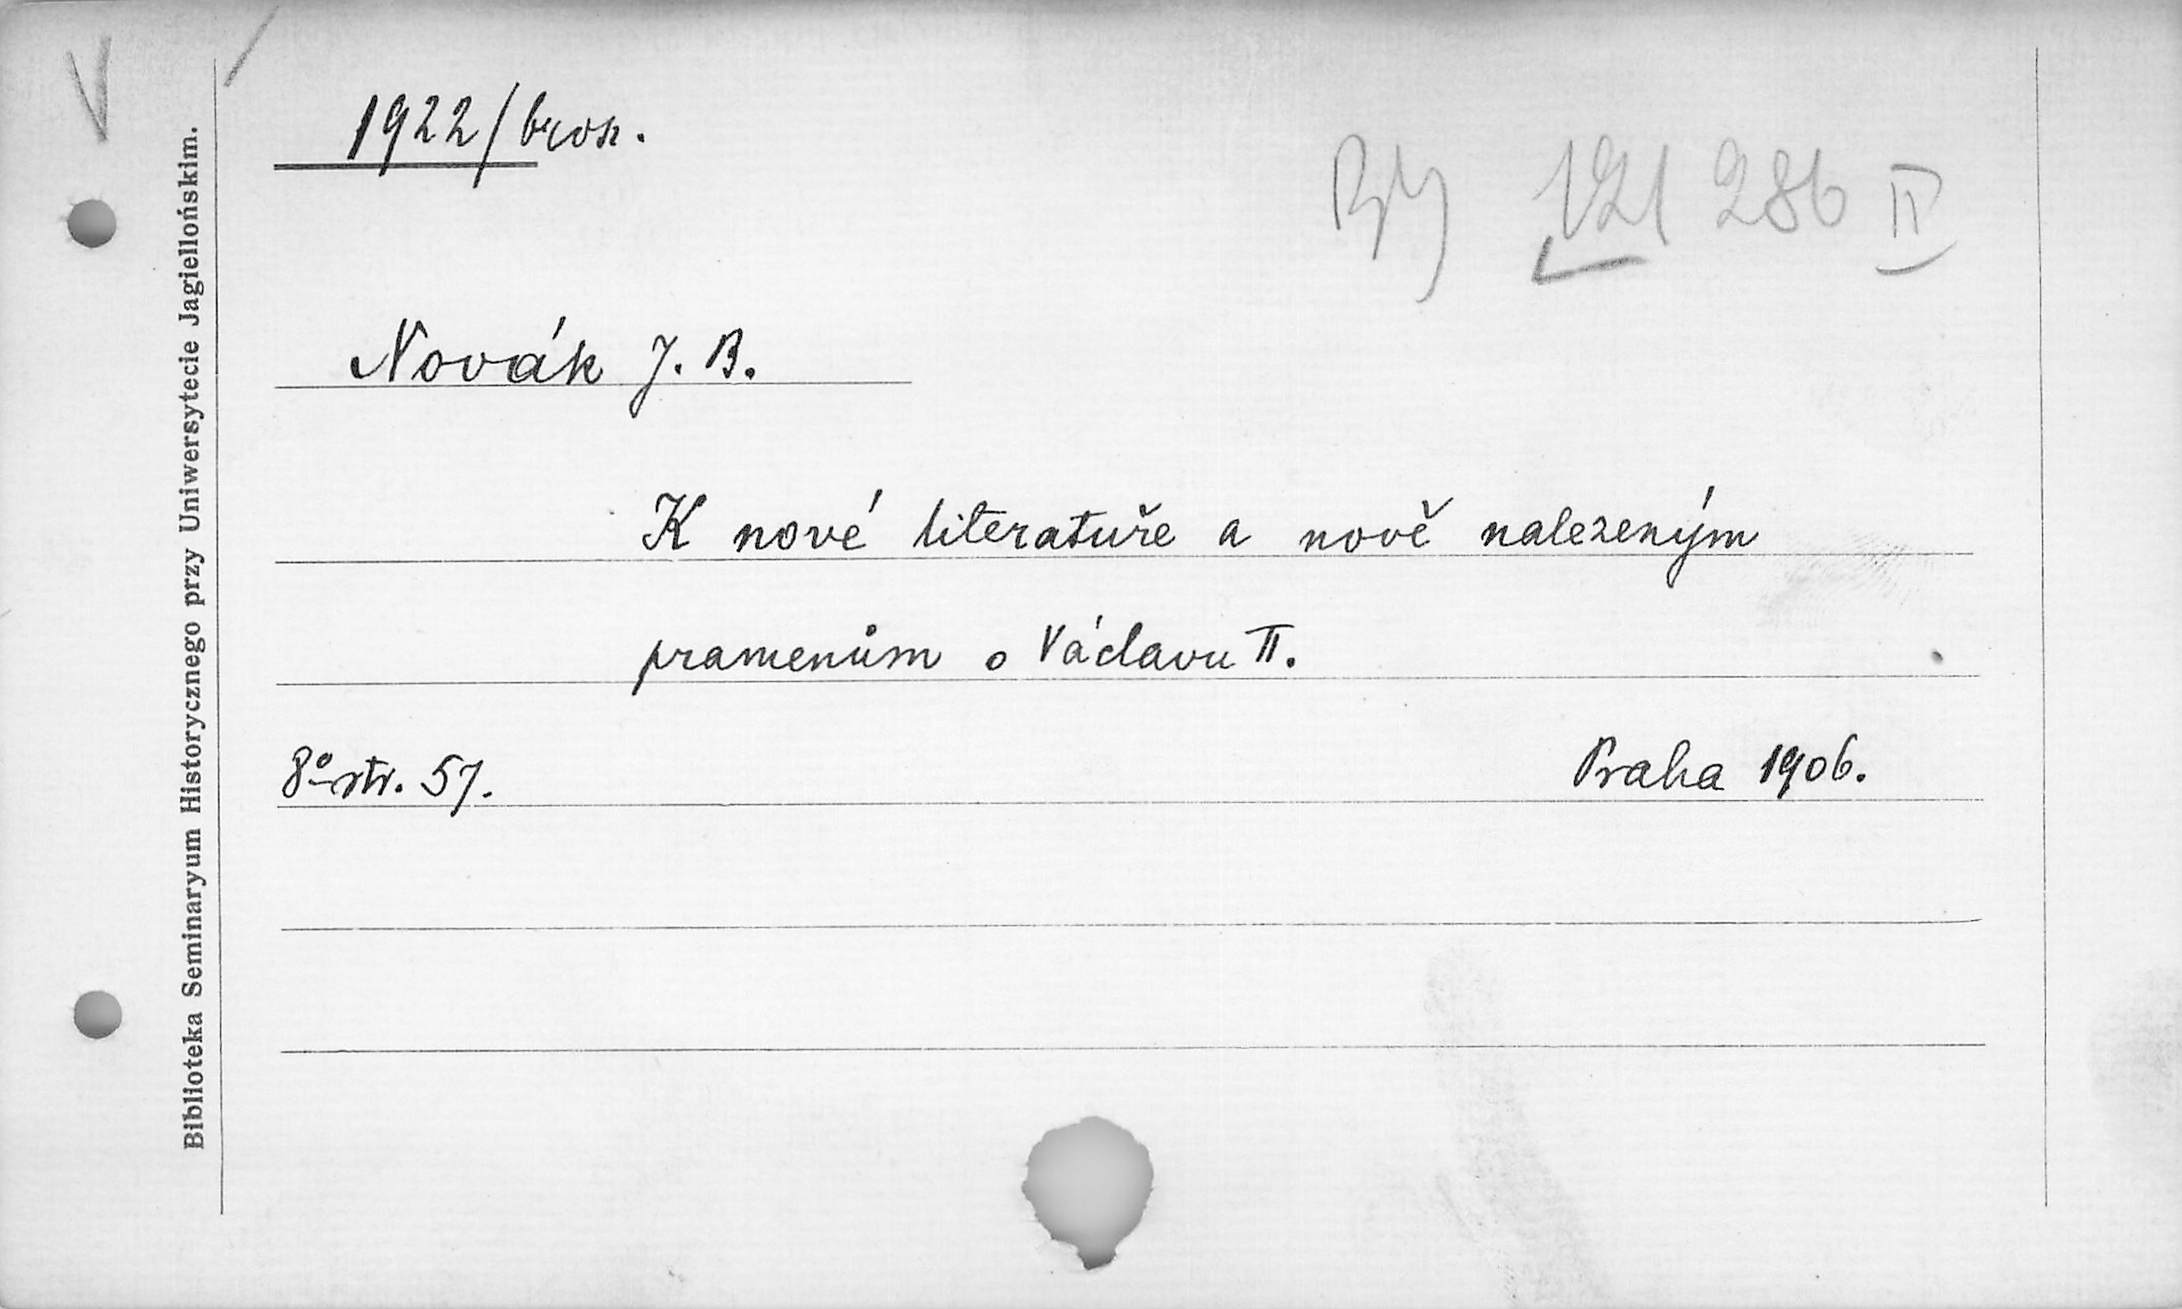 1922/brosz.
121 286 II
Novák J. B.
K nové literatuře a nově nalezeným
pramenům o Václavu II.
8º str. 57.
Praha 1906.
Biblioteka Seminaryum Historycznego przy Uniwersytecie Jagiellońskim.